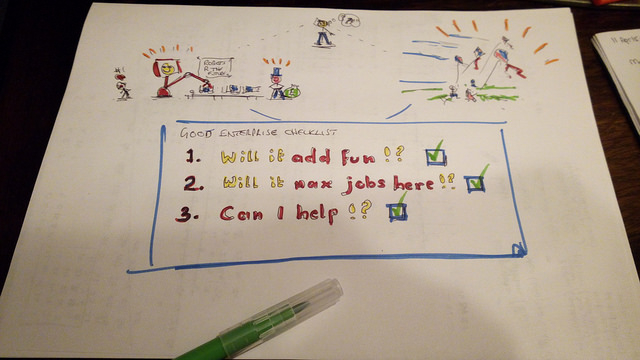 ROBOTS
R THE
FUTURE
GOOD ENTERPRISE CHECKLIST
1. Will it add fun !?
2. Will it max jobs here !?
3. Can I help !?